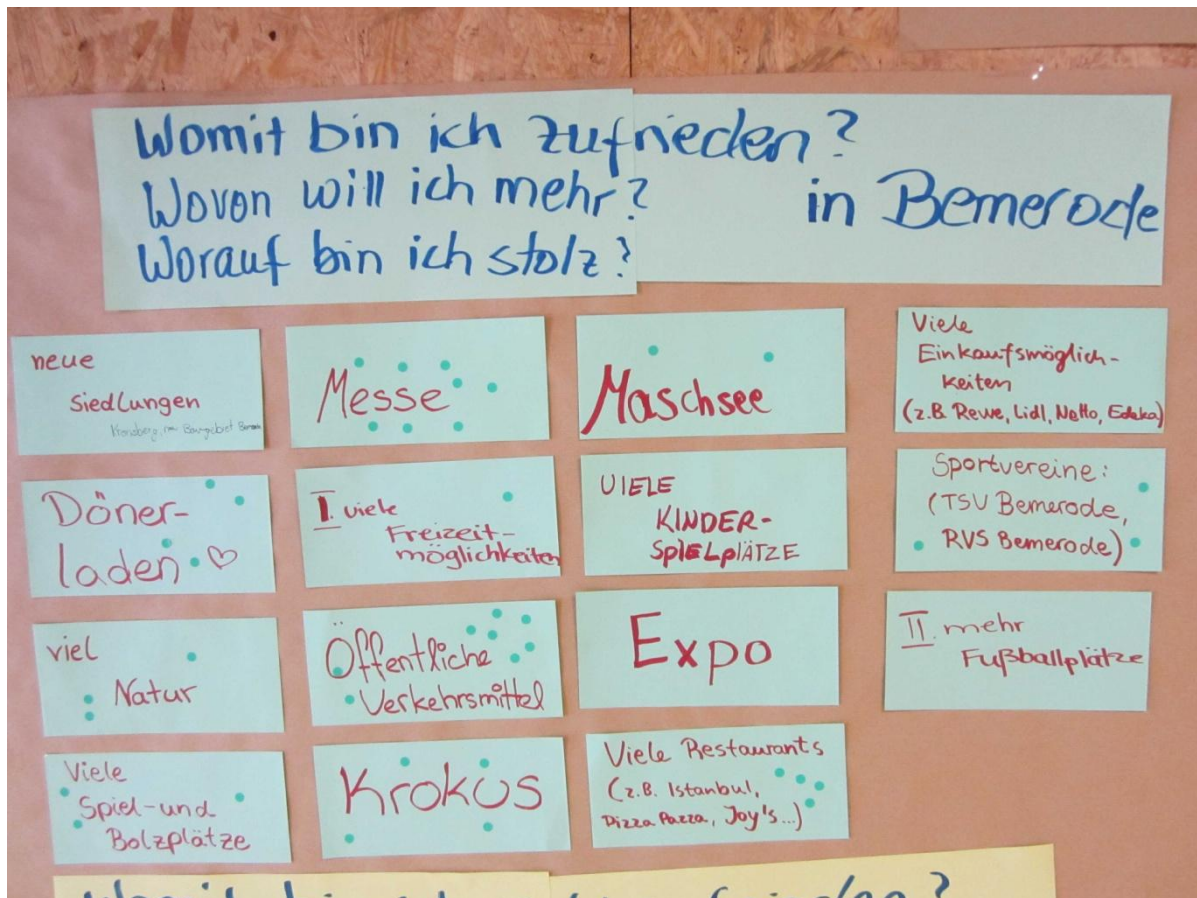 Womit bin ich zufrieden?
Wovon will ich mehr?
Worauf bin ich stolz?
in Bemerode
neue
Siedlungen
Messe
Maschsee
Viele
Einkaufsmöglich-
keiten
(z.B. Rewe, Lidl, Netto, Edeka)
Döner-
laden
I. viele
Freizeit-
möglichkeiten
VIELE
KINDER-
SPIELPLÄTZE
Sportvereine:
(TSV Bemerode,
RVS Bemerode)
viel
Natur
Öffentliche
Verkehrsmittel
Expo
II. mehr
Fußballplätze
Viele
Spiel-und
Bolzplätze
Krokus
Viele Restaurants
(z.B. Istanbul,
Pizza Pazza, Joy's...)